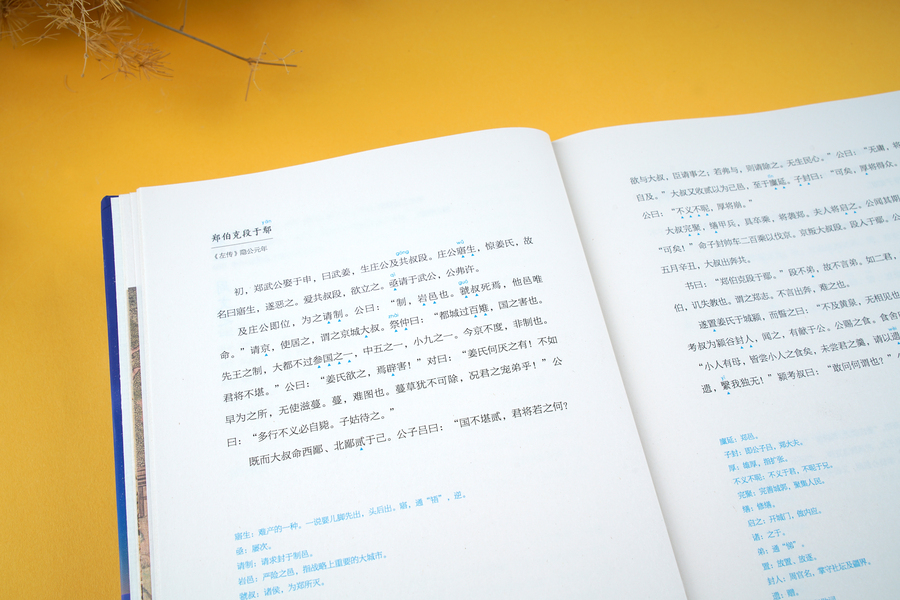 yān
郑伯克段于鄢
《左传》隐公元年
初，郑武公娶于申，曰武姜，生庄公及共叔段。庄公寤生，惊姜氏，故
名曰寤生，遂恶之。爱共叔段，欲立之。亟请于武公，公弗许。
及庄公即位，为之请制。公曰：“制，岩邑也。虢叔死焉，他邑唯
命。”请京，使居之，谓之京城大叔。祭仲曰：“都城过百雉，国之害也。
先王之制，大都不过参国之一，中五之一，小九之一。今京不度，非制也。
君将不堪。”公曰：“姜氏欲之，焉辟害！”对曰：“姜氏何厌之有！不如
早为之所，无使滋蔓。蔓，难图也。蔓草犹不可除，况君之宠弟乎！”公
曰：“多行不义必自毙。子姑待之。”
既而大叔命西鄙、北鄙贰于己。公子吕曰：“国不堪贰，君将若之何？
寤生：难产的一种，一说婴儿脚先出，头后出。寤，通“牾”，逆。
亟：屡次。
请制：请求封于制邑。
岩邑：严险之邑，指战略上重要的大城市。
虢叔：诸侯，为郑所灭。
欲与大叔，臣请事之；若弗与，则请除之。无生民心。”公曰：“无庸，将
自及。”大叔又收贰以为己邑，至于廪延。子封曰：“可矣，厚将得众。
公曰：“不义不昵，厚将崩。”
大叔完聚，缮甲兵，具卒乘，将袭郑。夫人将启之。公闻其期
“可矣！”命子封帅车二百乘以伐京。京叛大叔段。段入于鄢。公
五月辛丑，大叔出奔共。
书曰：“郑伯克段于鄢。”段不弟，故不言弟。如二君，
伯，讥失教也，谓之郑志。不言出奔，难之也。
遂置姜氏于城颍，而誓之曰：“不及黄泉，无相见也
考叔为颍谷封人，闻之，有献于公。公赐之食。食舍
“小人有母，皆尝小人之食矣，未尝君之羹，请以遗
遗，繄我独无！”颍考叔曰：“敢问何谓也？”
廪延：郑邑。
子封：即公子吕，郑大夫。
厚：雄厚，指扩张。
不义不昵：不义于君，不昵于兄。
完聚：完善城郭，聚集人民。
缮：修缮。
启之：开城门，做内应。
诸：之于。
弟：通“悌”。
置：放置，放逐。
封人：周官名，掌守社坛及疆界。
遗：赠。